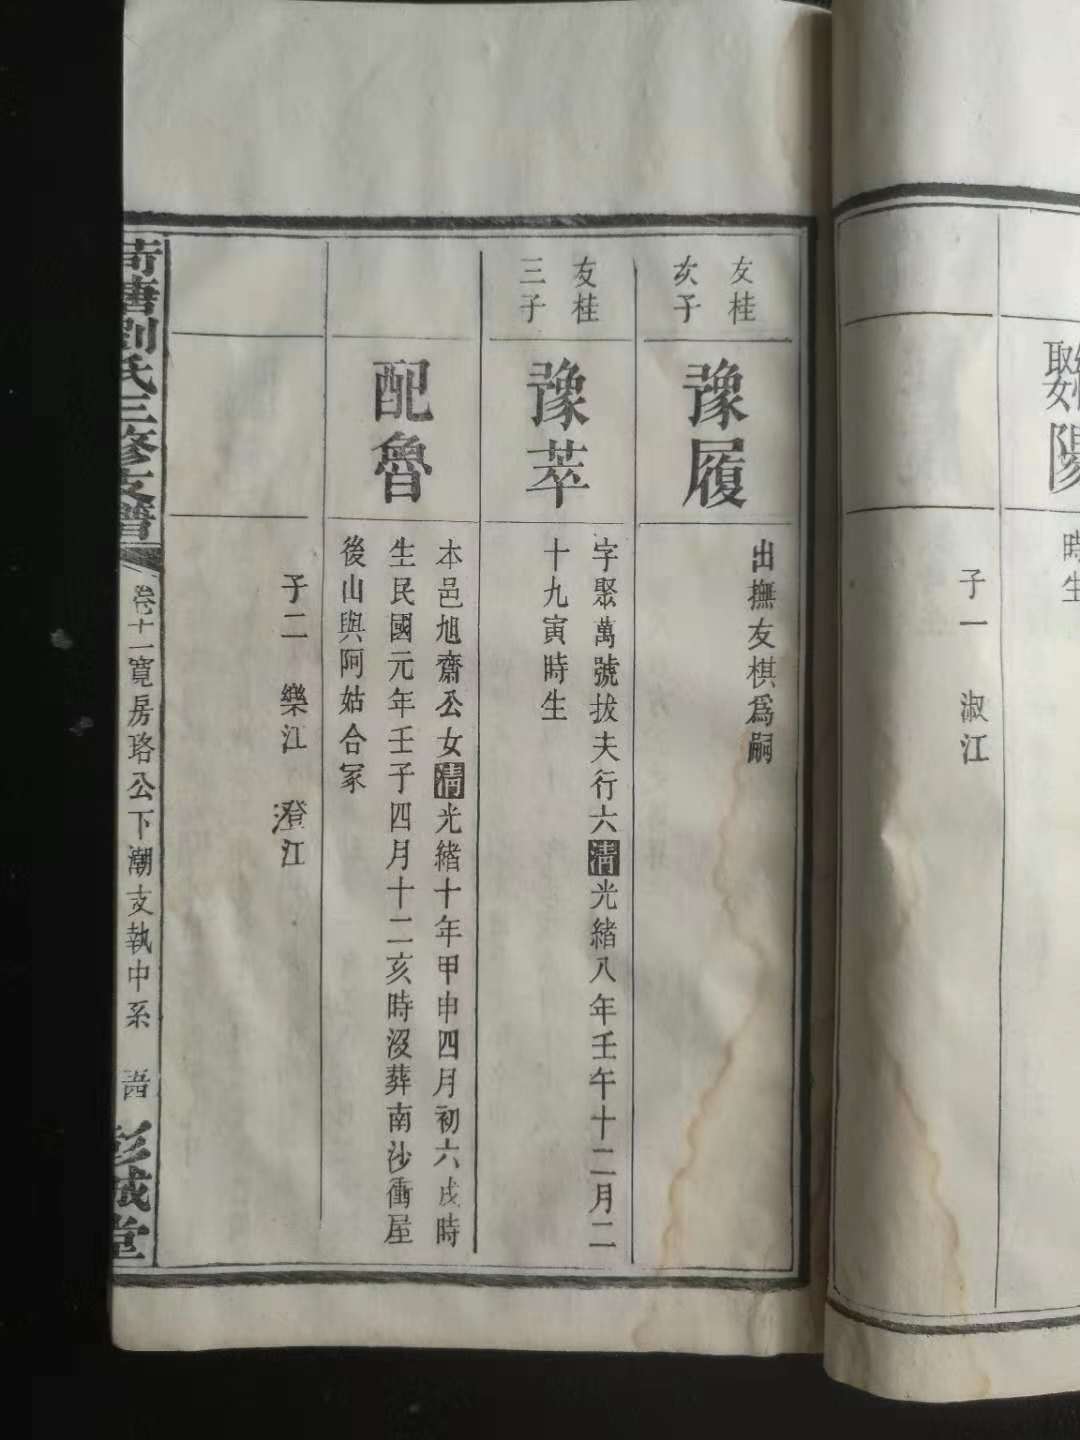 時生
子一　淑江
友桂
次子
豫履
出撫友棋爲嗣
友桂
三子
豫萃
字聚萬號拔夫行六清光緒八年壬午十二月二
十九寅時生
配魯
本邑旭齋公女清光緒十年甲申四月初六戌時
生民國元年壬子四月十二亥時沒葬南沙衝屋
後山與阿姑合冢
子二　樂江　澄江
唐劉氏三修支譜
卷十一寬房珞公下潮支執中系
彭城堂